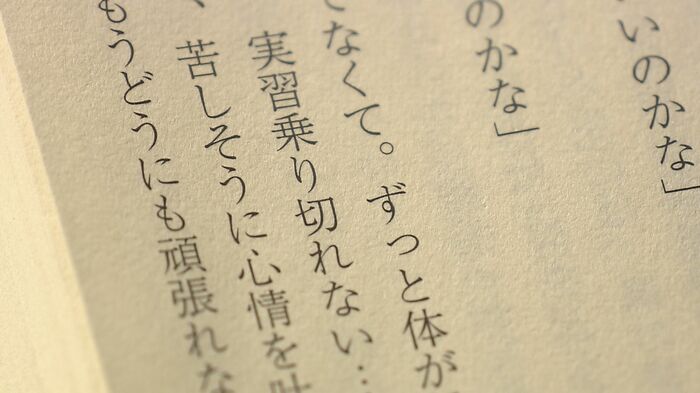 いのかな」
のかな」
なくて。ずっと体が
実習乗り切れない…
、苦しそうに心情を
もうどうにも頑張れな